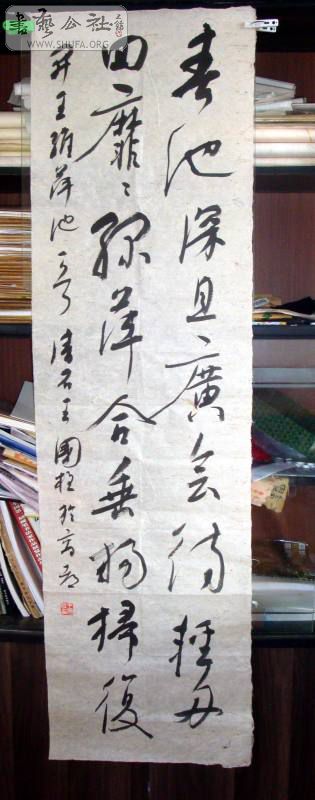 書藝公社
WWW.SHUFA.ORG
春池深且廣会待輕舟
回靡〻綠萍合垂楊掃復
开王維萍池一首石王國柱於